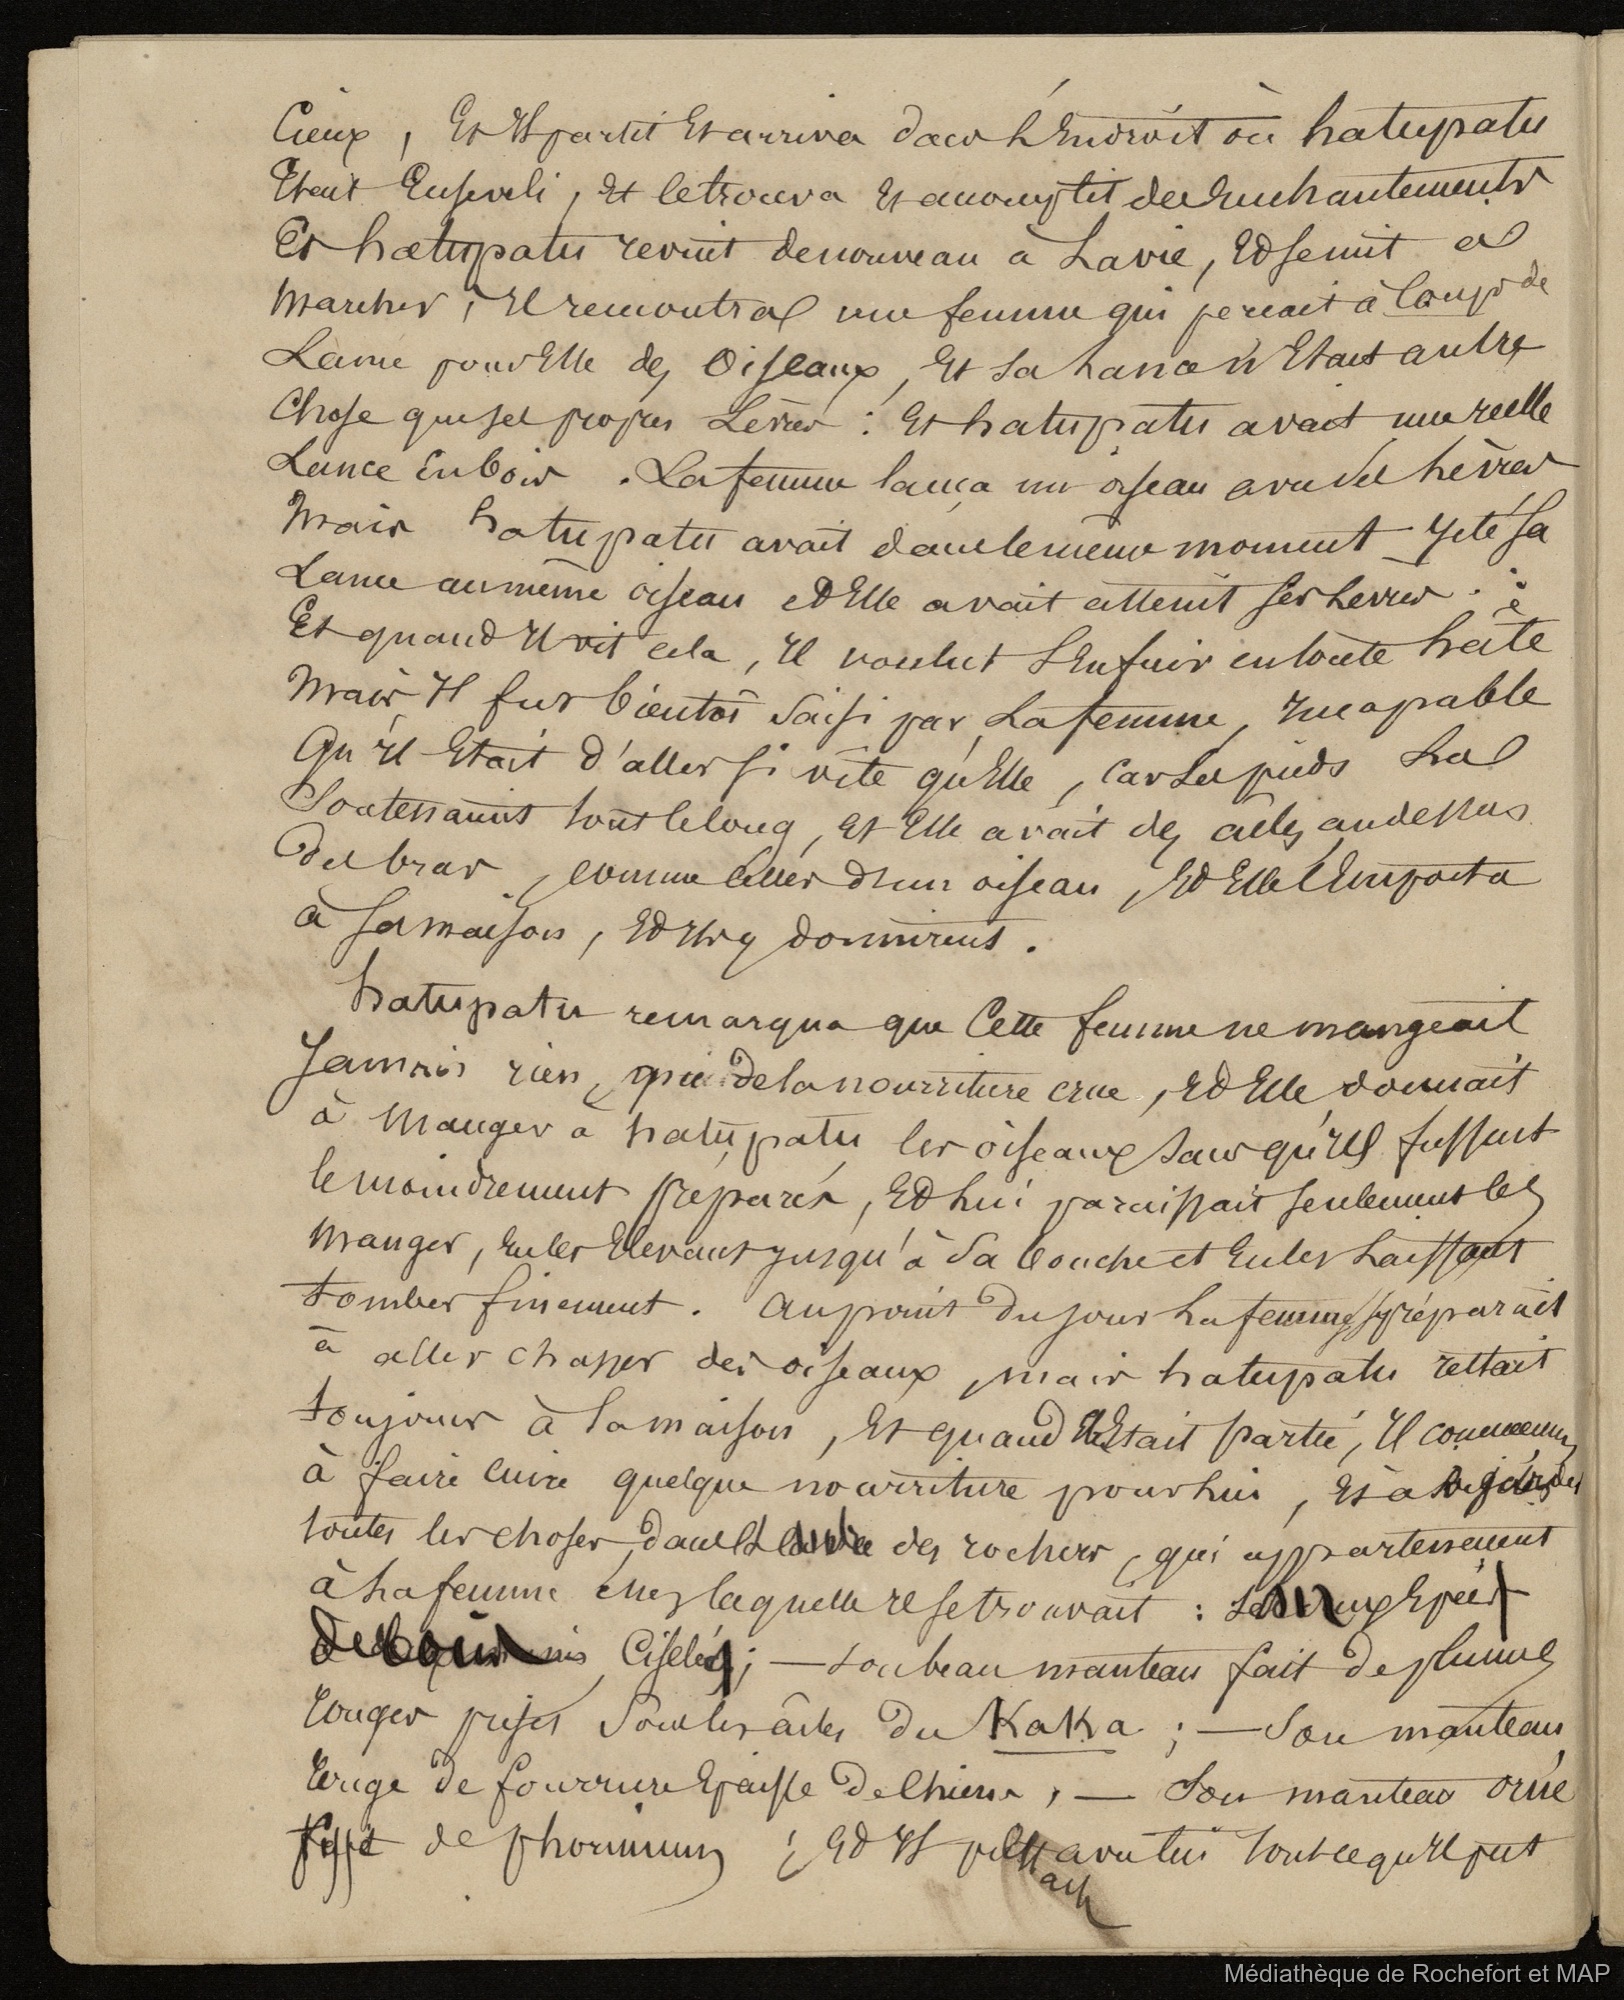 Cieux, Et Il partit Et arriva dans L'Endroit où hatupatu
Etait Enseveli, Et le trouva Et accomplit des Enchantements
Et hatupatu revint de nouveau à La vie, Et se mit à
Marcher; Il rencontra une femme qui perçait à Coups de
Lance pour Elle des Oiseaux, Et sa Lance n'Etait autre
Chose que ses propres Lèvres: Et hatupatu avait une reelle
Lance En bois. La femme lança un oiseau avec ses Lèvres
Mais hatupatu avait dans le même moment Jeté sa
Lance au même oiseau Et Elle avait atteint ses Levres.
Et quand Il vit cela, Il voulut S'Enfuir en toute hâte
Mais Il fut bientôt Saisi par La femme, Incapable
Qu'Il Etait d'aller si vite qu'Elle, car Les pieds La
Soutenaient tout le long, Et Elle avait des ailes au dessus
Des bras, comme Celles d'un oiseau, Et Elle L'Emporta
à sa maison, Et Ils y dormirent.
Hatupatu remarqua que Cette femme ne mangeait
Jamais rien, que de la nourriture crue, Et Elle donnait
à Manger à hatupatu les oiseaux sans qu'Ils fussent
le moindrement préparés, Et Lui paraissait seulement les
Manger, En les Elevant jusqu'à Sa bouche et En les Laissant
tomber finement. Au point Du jour La femme se préparait
à aller chasser des oiseaux, mais hatupatu restait
toujours à La maison, Et quand Elle Etait partie, Il commença
à faire cuire quelque nourriture pour Lui, Et à regarder
toutes les choses, dans des rochers, qui appartenaient
à La femme chez laquelle Il se trouvait: son Epée
de bois Ciselé; — son beau manteau fait De plumes
rouges prises Sous les âiles Du Kaka; — Son manteau
rouge de fourrure Epaisse De Chiens, — Son manteau orné
de phormium; Et Il avec lui tout ce qu'Il put
Médiathèque de Rochefort et MAP